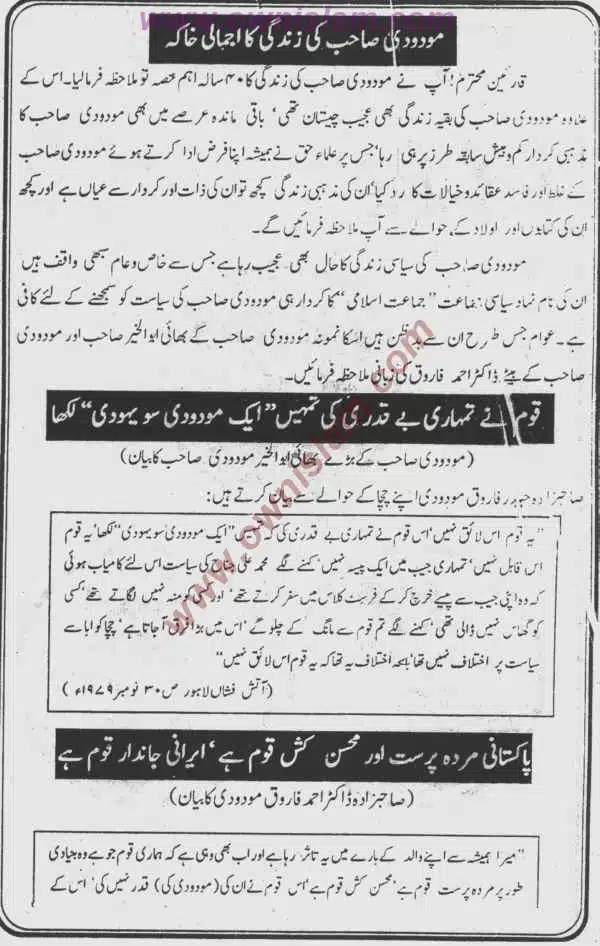 www.ownislam.com
مودودی صاحب کی زندگی کا اجمالی خاکہ
قارئین محترم! آپ نے مودودی صاحب کی زندگی کا ۴۰ سالہ اہم حصہ تو ملاحظہ فرمالیا۔ اس کے
علاوہ مودودی صاحب کی بقیہ زندگی بھی عجیب چیستان تھی، باقی ماندہ عرصے میں بھی مودودی صاحب کا
مذہبی کردار کم و بیش سابقہ طرز پر ہی رہا، جس پر علماء حق نے ہمیشہ اپنا فرض ادا کرتے ہوئے مودودی صاحب
کے غلط اور فاسد عقائد و خیالات کا رد کیا، ان کی مذہبی زندگی کچھ تو ان کی ذات اور کردار سے عیاں ہے اور کچھ
ان کی کتابوں اور اولاد کے حوالے سے آپ ملاحظہ فرمائیں گے۔
مودودی صاحب کی سیاسی زندگی کا حال بھی عجیب رہا ہے جس سے خاص و عام سبھی واقف ہیں
ان کی نام نہاد سیاسی جماعت "جماعت اسلامی" کا کردار ہی مودودی صاحب کی سیاست کو سمجھنے کے لئے کافی
ہے۔ عوام جس طرح ان سے بدظن ہیں اسکا نمونہ مودودی صاحب کے بھائی ابوالخیر صاحب اور مودودی
صاحب کے بیٹے ڈاکٹر احمد فاروق کی زبانی ملاحظہ فرمائیں۔
قوم نے تمہاری بے قدری کی تمہیں "ایک مودودی سو یہودی" لکھا
(مودودی صاحب کے بڑے بھائی ابوالخیر مودودی صاحب کا بیان)
صاحبزادہ حیدر فاروق مودودی اپنے چچا کے حوالے سے بیان کرتے ہیں:
"یہ قوم اس لائق نہیں، اس قوم نے تمہاری بے قدری کی کہ تمہیں "ایک مودودی سو یہودی" لکھا، یہ قوم
اس قابل نہیں، تمہاری جیب میں ایک پیسہ نہیں، کہنے لگے محمد علی جناح کی سیاست اس لئے کامیاب ہوئی
کہ وہ اپنی جیب سے پیسے خرچ کر کے فرسٹ کلاس میں سفر کرتے تھے، اور کسی کو منہ نہیں لگاتے تھے، کسی
کو گھاس نہیں ڈالی تھی، کہنے لگے تم قوم سے مانگ کے چلو گے، اس میں بڑا فرق آجاتا ہے، چچا کو ابا سے
سیاست پر اختلاف نہیں تھا، بلکہ اختلاف یہ تھا کہ یہ قوم اس لائق نہیں"
(آتش فشاں لاہور ص ۳۰ نومبر ۱۹۷۹ء)
پاکستانی مردہ پرست اور محسن کش قوم ہے، ایرانی جاندار قوم ہے
(صاحبزادہ ڈاکٹر احمد فاروق مودودی کا بیان)
"میرا ہمیشہ سے اپنے والد کے بارے میں یہ تاثر رہا ہے اور اب بھی وہی ہے کہ ہماری قوم جو ہے وہ بنیادی
طور پر مردہ پرست قوم ہے، محسن کش قوم ہے، اس قوم نے ان کی (مودودی کی) قدر نہیں کی، اس کے
www.ownislam.com